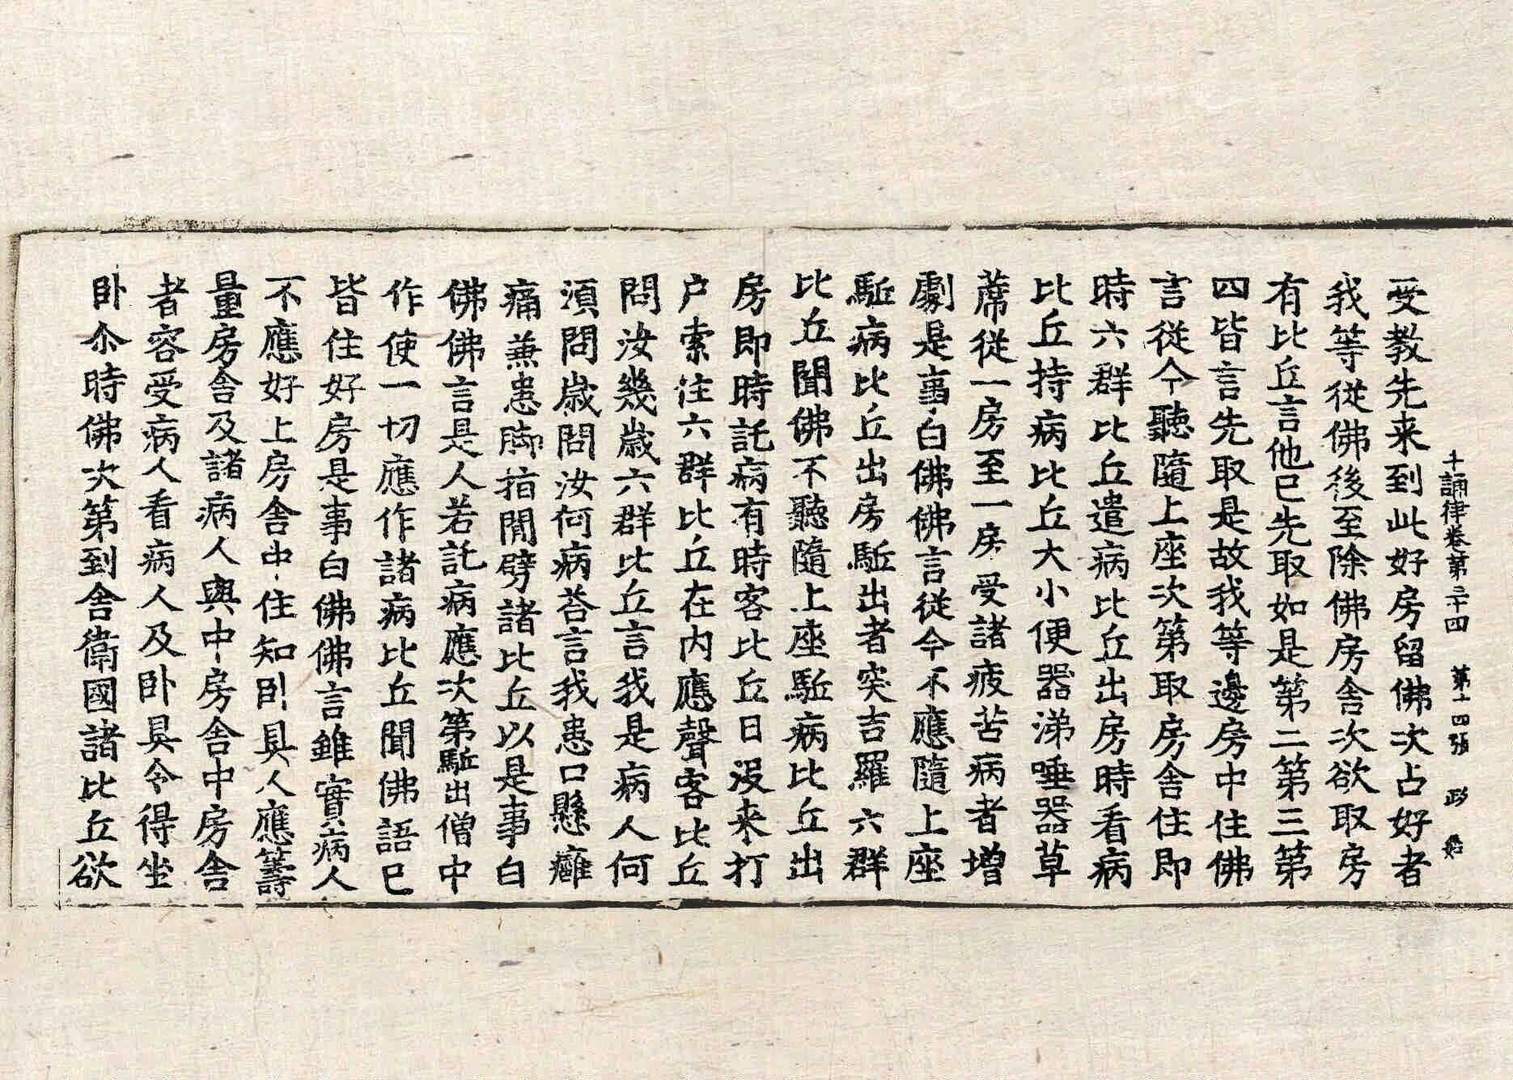 十誦律卷第三十四　第十四張　政
受教先来到此好房留佛次占好者
我等從佛後至除佛房舍次欲取房
有比丘言他已先取如是第二第三第
四皆言先取是故我等邊房中住佛
言從今聽隨上座次第取房舍住即
時六群比丘遣病比丘出房時看病
比丘持病比丘大小便器涕唾器草
蓆從一房至一房受諸疲苦病者增
劇是事白佛佛言從今不應隨上座
駈病比丘出房駈出者突吉羅六群
比丘聞佛不聽隨上座駈病比丘出
房即時託病有時客比丘日沒来打
户索住六群比丘在内應聲客比丘
問汝幾歲六群比丘言我是病人何
須問歲問汝何病荅言我患口懸癰
痛兼患脚指間劈諸比丘以是事白
佛佛言是人若託病應次第駈出僧中
作使一切應作諸病比丘聞佛語已
皆住好房是事白佛佛言雖實病人
不應好上房舍中住知卧具人應籌
量房舍及諸病人與中房舍中房舍
者容受病人看病人及卧具令得坐
卧尒時佛次第到舍衛國諸比丘欲